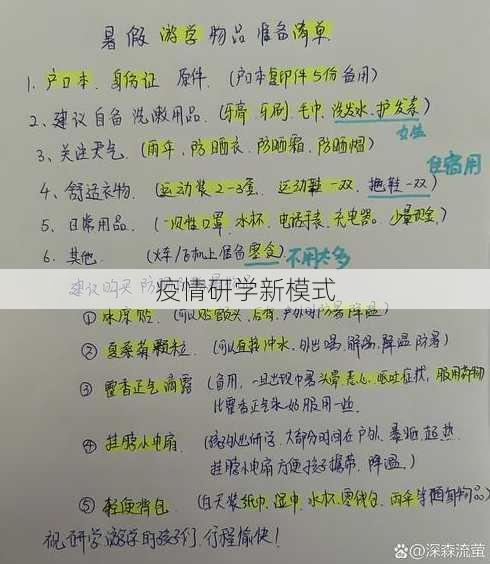 暑假游学物品准备清单
1、户口本、身份证 原件、(户口本复印件5份备用)
2、建议自备洗漱用品、(牙膏、牙刷、毛巾、洗发水、护发素)
女生
3、关注天气、(雨伞、防晒衣、防晒霜、防晒帽)
住宿用
4、舒适衣物、(运动装2-3套、运动鞋一双、拖鞋一双)
5、日常用品、(一次性口罩、水杯、电话手表、充电器、少量现金)
6、其他、(火车/飞机上自备零食) 不用太多
建议购买 防
疫情研学新模式
① 冰凉贴、(可以贴额头、后背、户外时防暑降温)
② 夏桑菊颗粒、(可以直接冲水、外出喝、解渴、降温防暑)
③ 藿香正气滴露 (备用、一旦出现中暑头晕、恶心、呕吐症状,服用药物
比藿香正气水好服用一些、
④ 挂脖小电扇、(孩子外出研学、大部分时间在户外、暴晒、超热
挂脖小电扇方便孩子携带、降温、)
⑤ 轻便背包、(白天装纸巾、湿巾、水杯、零钱包、雨伞等随身物品)
祝研学游学的孩子们、行程愉快!
@深森流萤